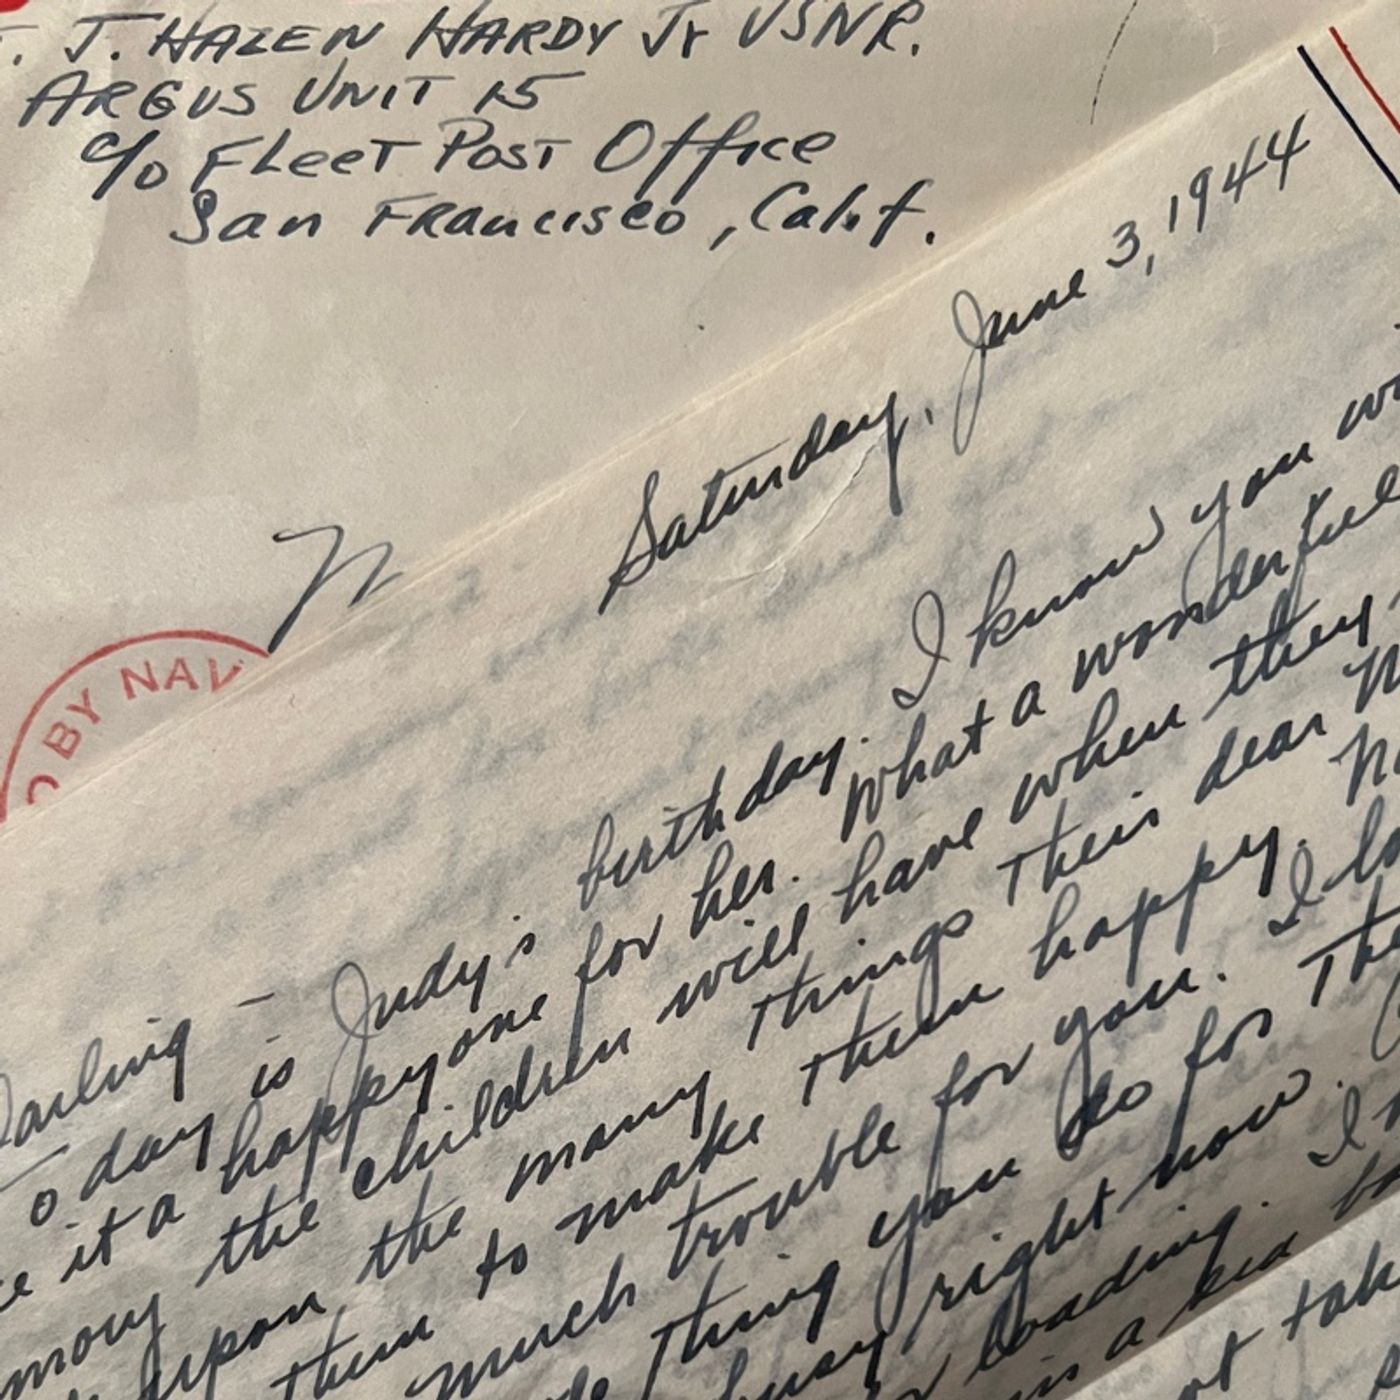 . J. HAZEN HARDY Jr USNR.
ARGUS UNIT 15
c/o FLeeT POST Office
San FRancisco, Calif.
BY NAV
Saturday, June 3, 1944
Darling -
Today is Judy's birthday. I know you
it a happy one for her. What a wonderful
the children will have when they
upon the many things their dear
them to make them happy.
much trouble for you. I
thing you do for
busy right now.
loading. I
is a kid
not take